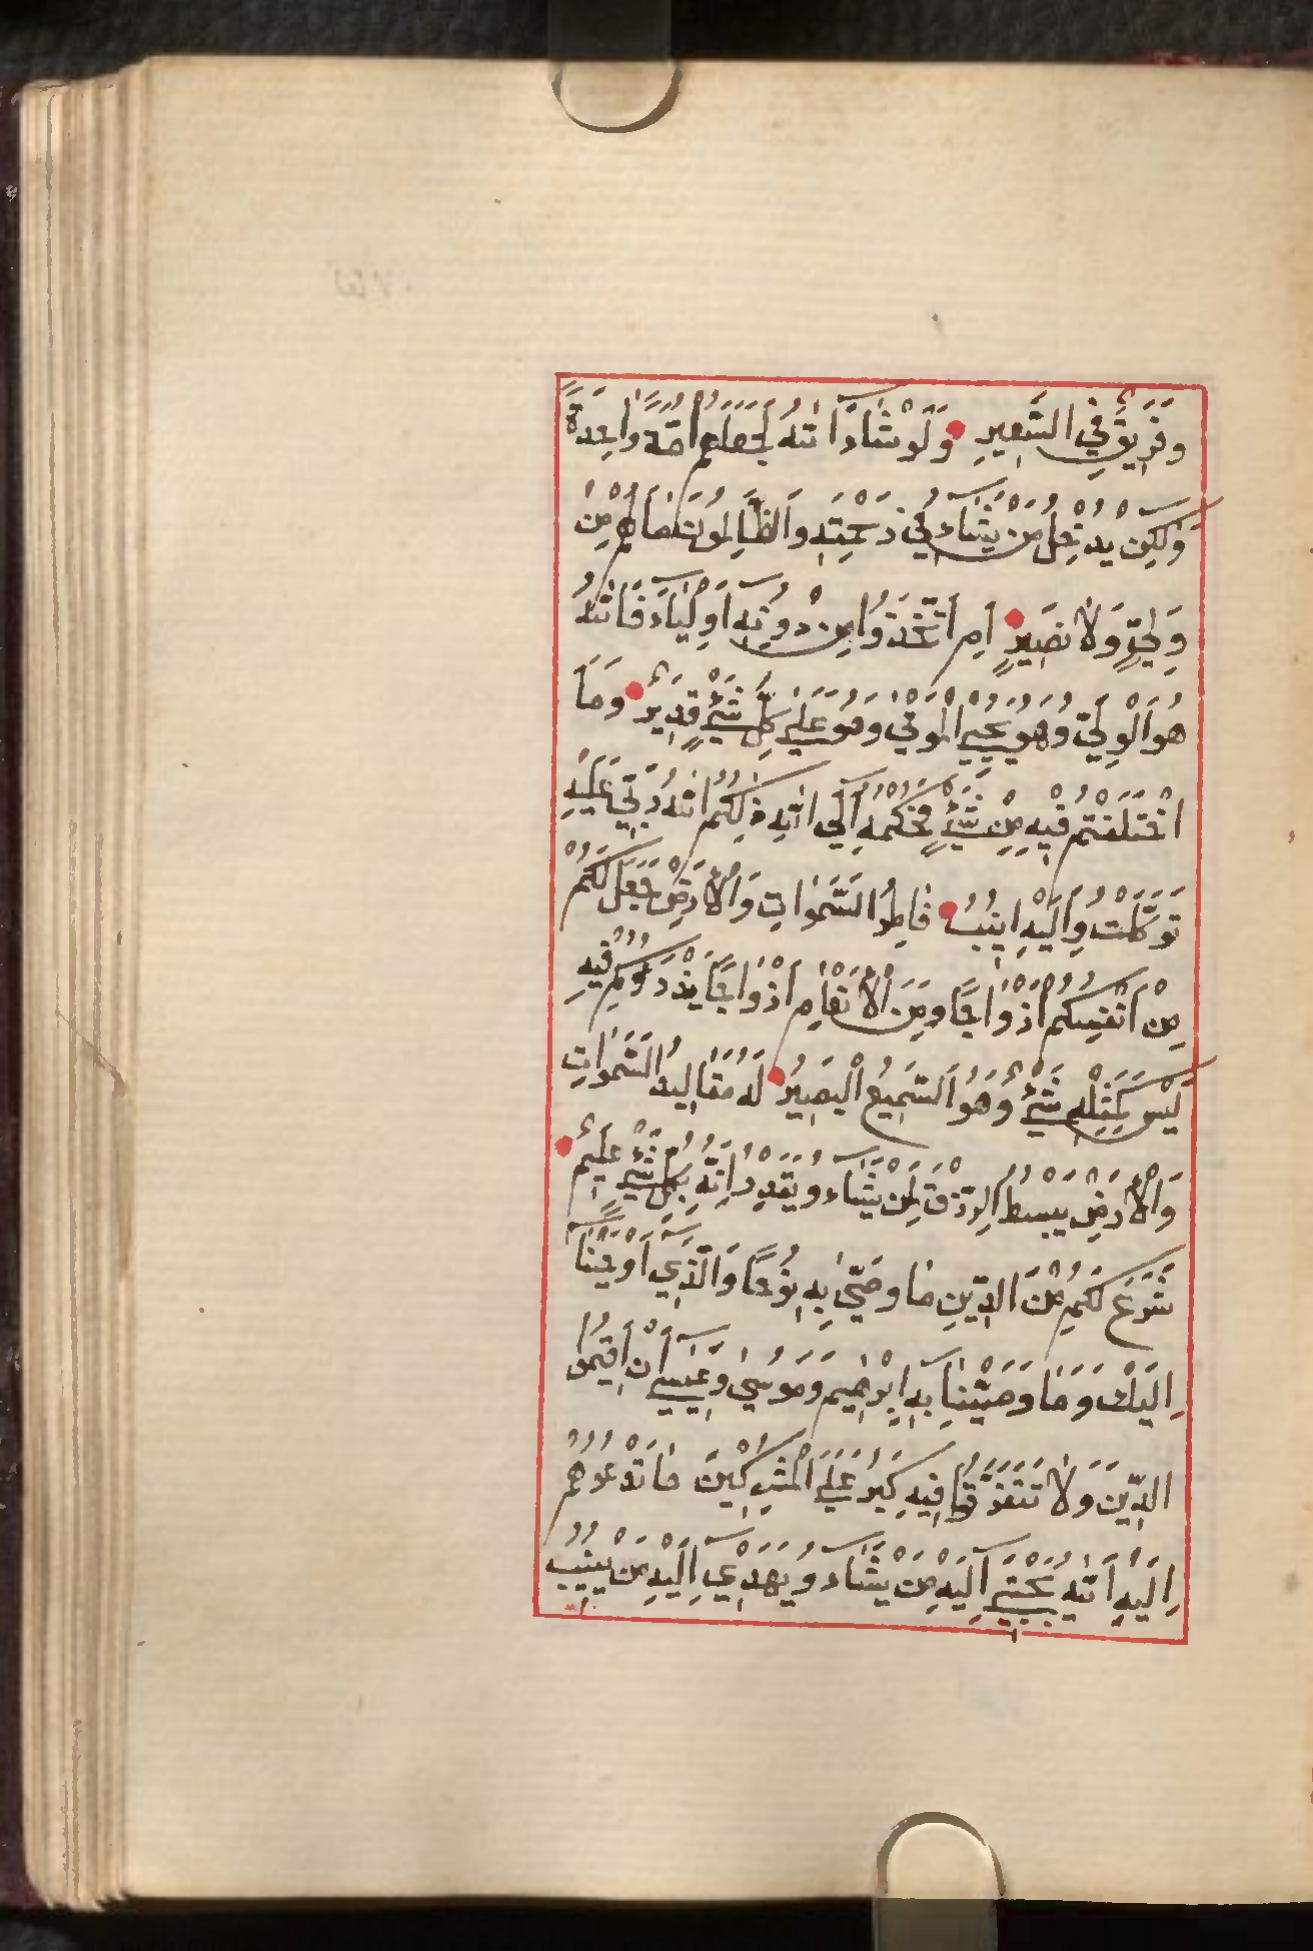 وَفَرِيقٌ فِي السَّعِيرِ وَلَوْ شَاءَ اللَّهُ لَجَعَلَهُمْ أُمَّةً وَاحِدَةً
وَلٰكِنْ يُدْخِلُ مَنْ يَشَاءُ فِي رَحْمَتِهِ وَالظَّالِمُونَ مَا لَهُمْ مِنْ
وَلِيٍّ وَلَا نَصِيرٍ أَمِ اتَّخَذُوا مِنْ دُونِهِ أَوْلِيَاءَ فَاللَّهُ
هُوَ الْوَلِيُّ وَهُوَ يُحْيِي الْمَوْتٰى وَهُوَ عَلٰى كُلِّ شَيْءٍ قَدِيرٌ وَمَا
اخْتَلَفْتُمْ فِيهِ مِنْ شَيْءٍ فَحُكْمُهُ إِلَى اللَّهِ ذٰلِكُمُ اللَّهُ رَبِّي عَلَيْهِ
تَوَكَّلْتُ وَإِلَيْهِ أُنِيبُ فَاطِرُ السَّمٰوَاتِ وَالْأَرْضِ جَعَلَ لَكُمْ
مِنْ أَنْفُسِكُمْ أَزْوَاجًا وَمِنَ الْأَنْعَامِ أَزْوَاجًا يَذْرَؤُكُمْ فِيهِ
لَيْسَ كَمِثْلِهِ شَيْءٌ وَهُوَ السَّمِيعُ الْبَصِيرُ لَهُ مَقَالِيدُ السَّمٰوَاتِ
وَالْأَرْضِ يَبْسُطُ الرِّزْقَ لِمَنْ يَشَاءُ وَيَقْدِرُ إِنَّهُ بِكُلِّ شَيْءٍ عَلِيمٌ
شَرَعَ لَكُمْ مِنَ الدِّينِ مَا وَصّٰى بِهِ نُوحًا وَالَّذِي أَوْحَيْنَا
إِلَيْكَ وَمَا وَصَّيْنَا بِهِ إِبْرٰهِيمَ وَمُوسٰى وَعِيسٰى أَنْ أَقِيمُوا
الدِّينَ وَلَا تَتَفَرَّقُوا فِيهِ كَبُرَ عَلَى الْمُشْرِكِينَ مَا تَدْعُوهُمْ
إِلَيْهِ اللَّهُ يَجْتَبِي إِلَيْهِ مَنْ يَشَاءُ وَيَهْدِي إِلَيْهِ مَنْ يُنِيبُ